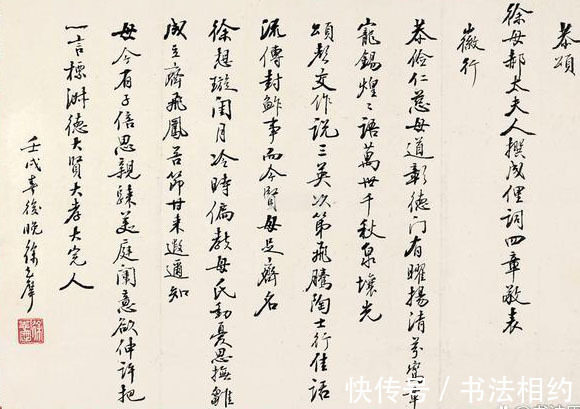 恭頌
徐母郝太夫人撰成俚詞四章敬表
徽行
恭儉仁慈母道彰德門有曜揚清芬密章
寵錫煌〻語萬世千秋泉壤光
頌文作說三英次第飛騰陶士行佳話
流傳封鮓事而今賢母足齊名
徐想璇閨月冷時偏教母氏動憂思撫雛
成立齊飛鳳苦節甘來遐邇知
母今有子倍思親美庭闈意欲伸許把
一言標淑德大賢大孝大完人
壬戌春後晚徐
快传号 / 书法相约